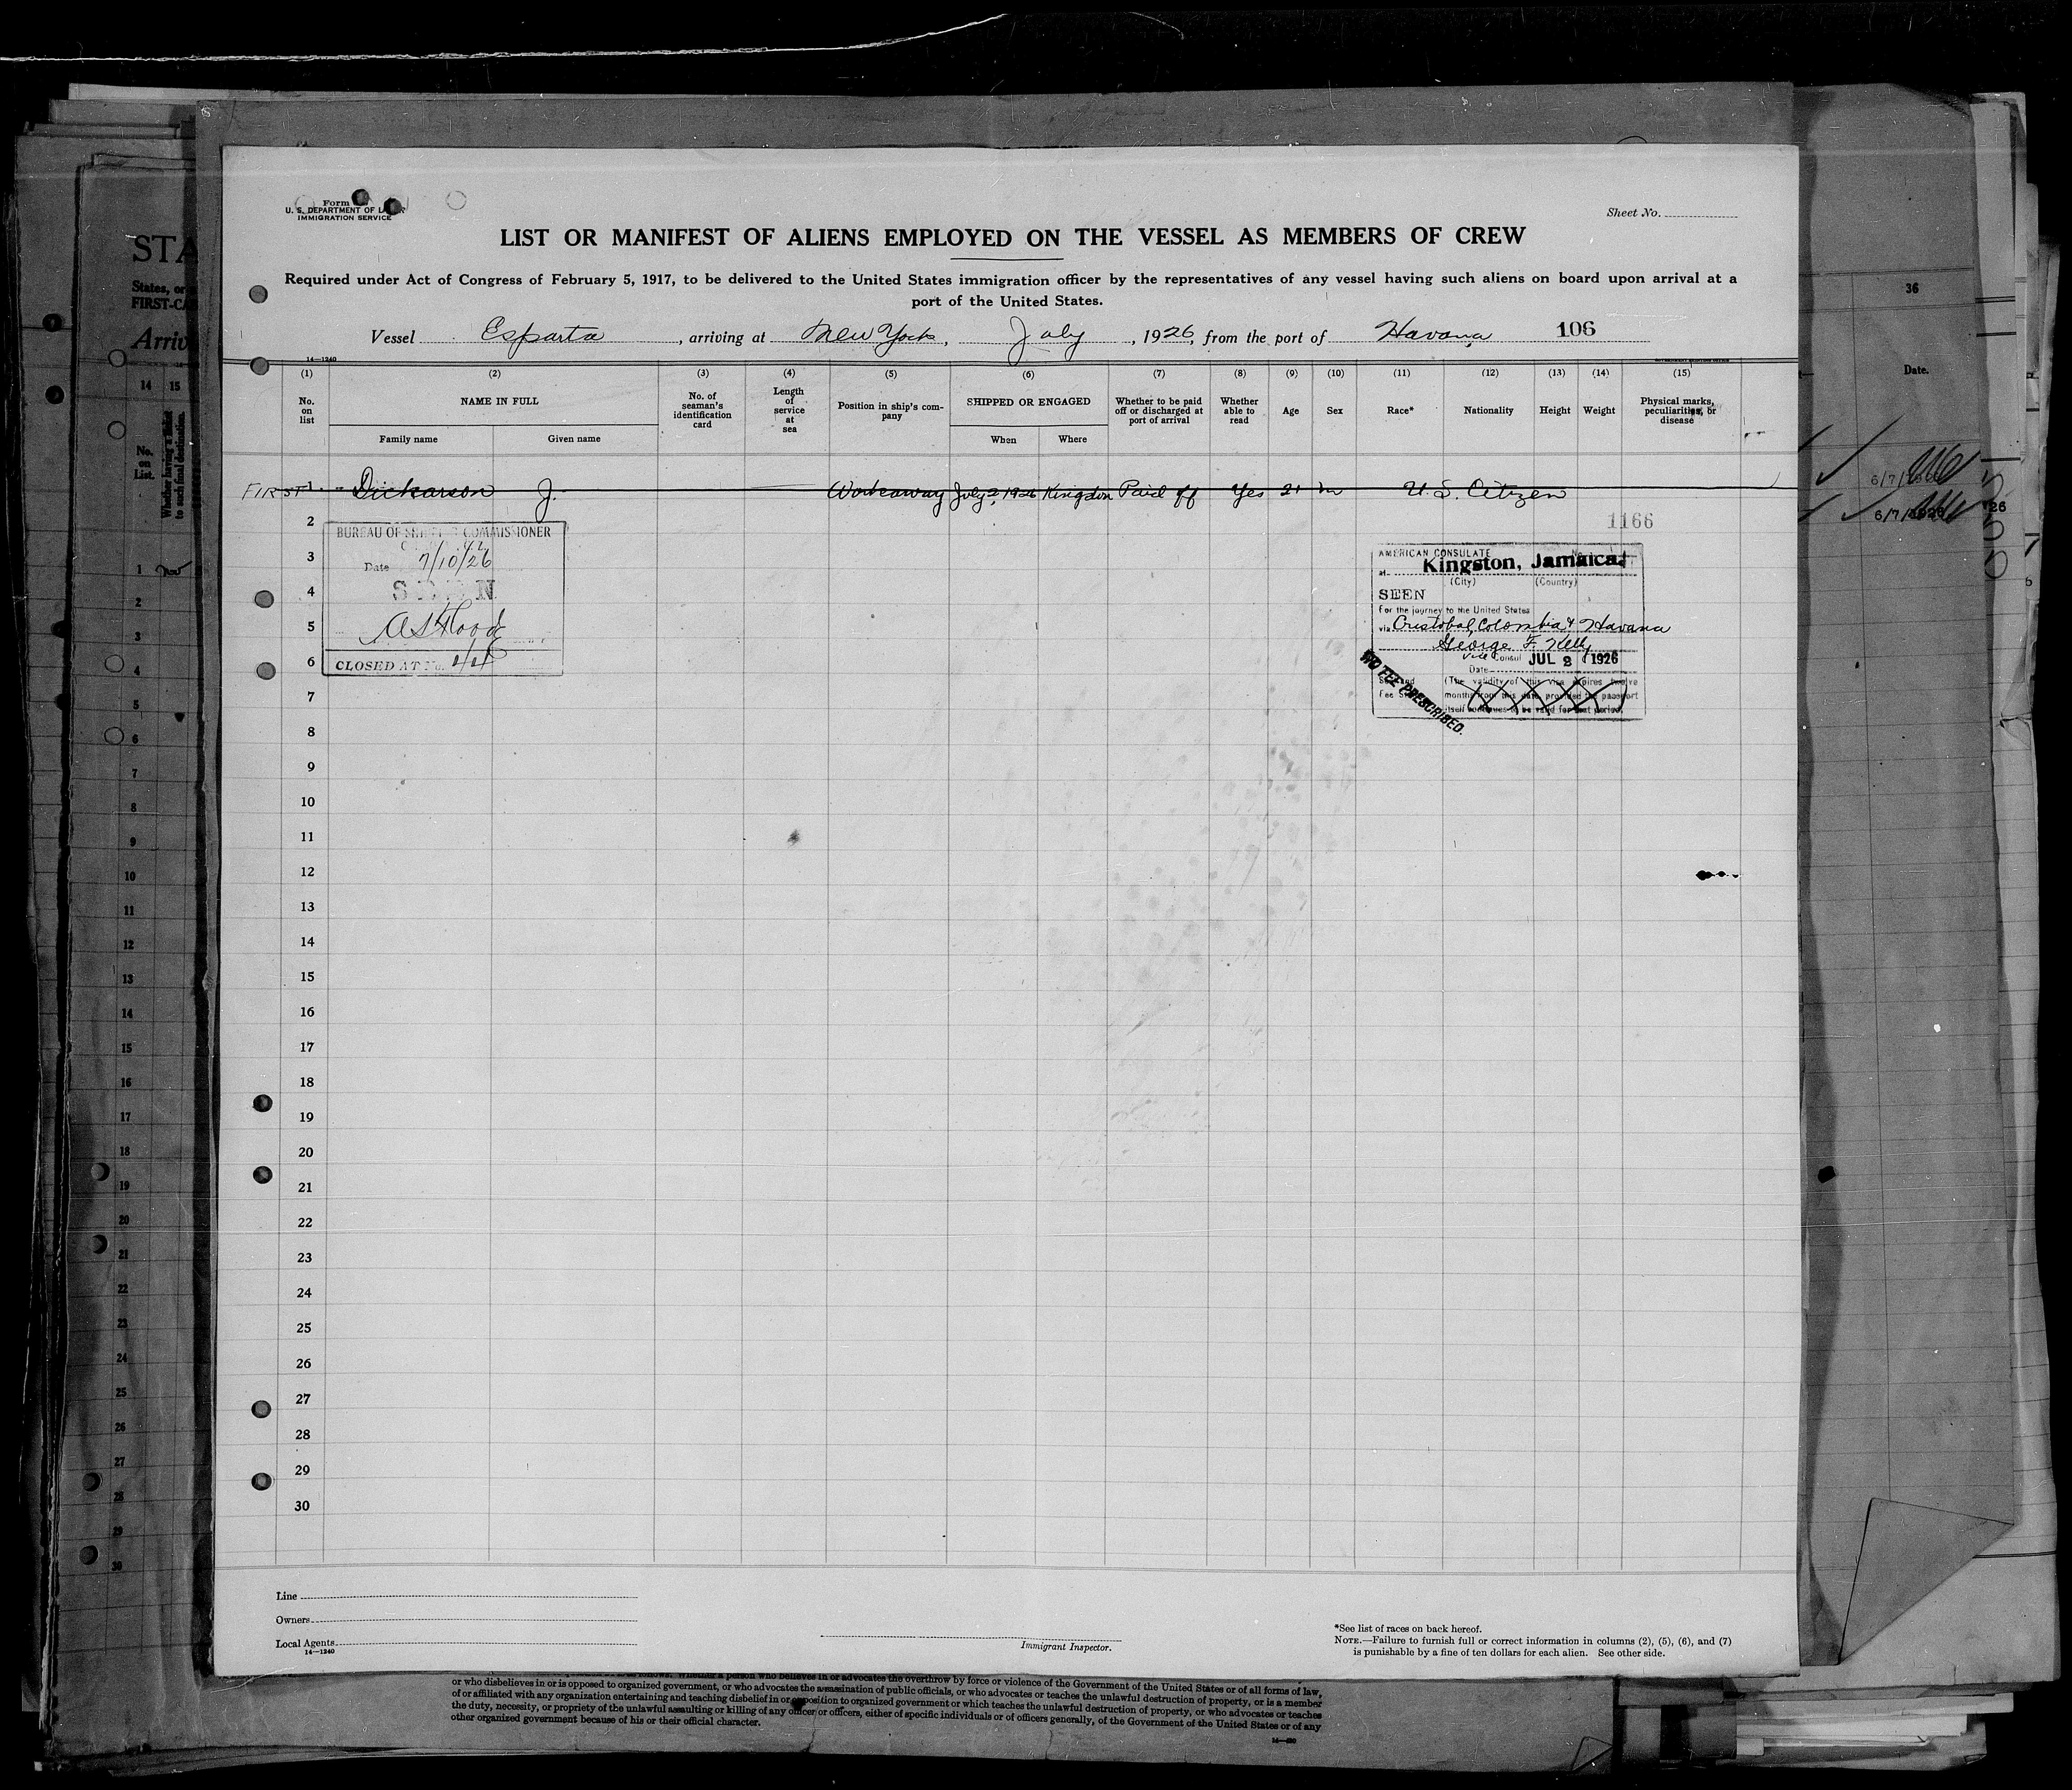 Form
U. S. DEPARTMENT OF LABOR
IMMIGRATION SERVICE
Sheet No.
LIST OR MANIFEST OF ALIENS EMPLOYED ON THE VESSEL AS MEMBERS OF CREW
Required under Act of Congress of February 5, 1917, to be delivered to the United States immigration officer by the representatives of any vessel having such aliens on board upon arrival at a
port of the United States.
Vessel Esparta , arriving at New York, July , 1926, from the port of Havana 106
14—1240
(1) (2) (3) (4) (5) (6) (7) (8) (9) (10) (11) (12) (13) (14) (15)
No. on list
NAME IN FULL
Family name Given name
No. of seaman's identification card
Length of service at sea
Position in ship's company
SHIPPED OR ENGAGED
When Where
Whether to be paid off or discharged at port of arrival
Whether able to read
Age
Sex
Race*
Nationality
Height
Weight
Physical marks, peculiarities, or disease
FIRST 1 Dickarson J. Workaway July 2, 1926 Kingston Paid off Yes 21 m U.S. Citizen
2
1166
BUREAU OF SHIPPING COMMISSIONER
Date 7/10/26
SEEN
CLOSED AT No.
AMERICAN CONSULATE
at Kingston, Jamaica.
(City) (Country)
SEEN
For the journey to the United States
via Cristobal, Colombia & Havana
George F. Kelly
Vice Consul JUL 2 1926
Date
(The validity of this visa expires twelve
months from this date provided the passport
itself continues to be valid for that period.
NO FEE PRESCRIBED.
3
4
5
6
7
8
9
10
11
12
13
14
15
16
17
18
19
20
21
22
23
24
25
26
27
28
29
30
Line
Owners
Local Agents
14—1240
Immigrant Inspector.
*See list of races on back hereof.
NOTE.—Failure to furnish full or correct information in columns (2), (5), (6), and (7)
is punishable by a fine of ten dollars for each alien. See other side.
STA
States, or
FIRST-CA
Arriv
14 15
No. on List.
Whether having a ticket to such final destination.
1
2
3
4
5
6
7
8
9
10
11
12
13
14
15
16
17
18
19
20
21
22
23
24
25
26
27
28
29
30
36
Date.
6/7/
6/7/1926
26
or who disbelieves in or is opposed to organized government, or who advocates the assassination of public officials, or who advocates or teaches the unlawful destruction of property, or is a member
of or affiliated with any organization entertaining and teaching disbelief in or opposition to organized government or which teaches the unlawful destruction of property, or who advocates or teaches
the duty, necessity, or propriety of the unlawful assaulting or killing of any officer or officers, either of specific individuals or of officers generally, of the Government of the United States or of any
other organized government because of his or their official character.